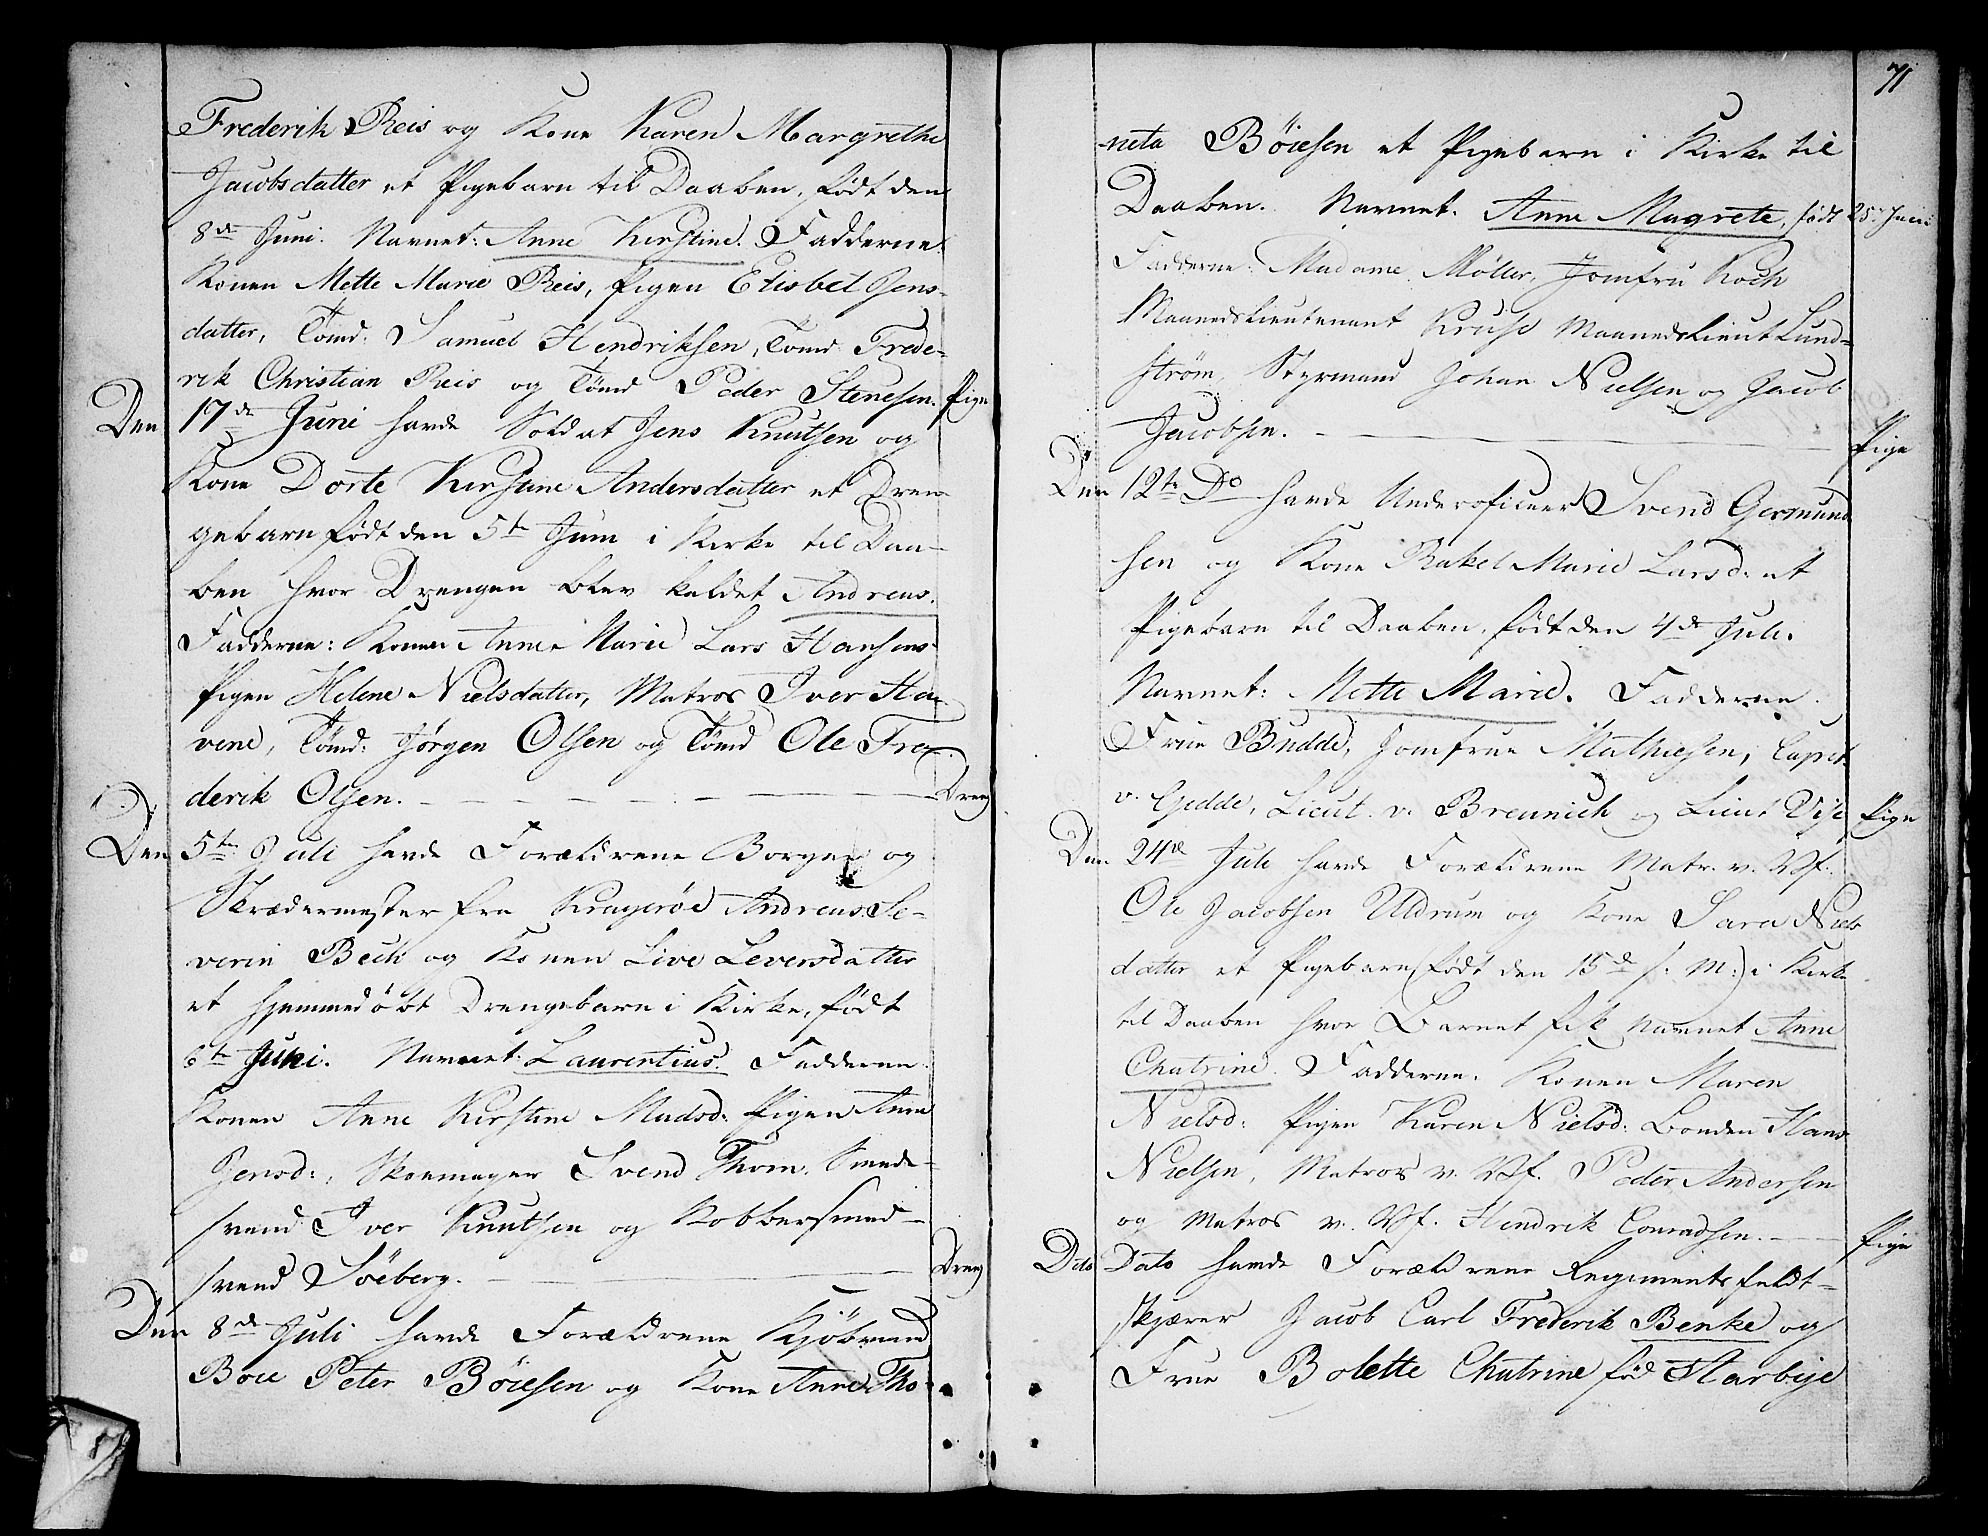 Frederik Reis og Kone Karen Margrethe
Jacobsdatter et Pigebarn til Daaben, født den
8de Juni. Navnet: Anne Kirstine. Fadderne
Konen Mette Marie Reis, Pigen Elisbet Jens-
datter, Tømd: Samuel Hendriksen, Tømd Frede-
rik Christian Reis og Tømd Peder Stenesen. Pige
Den 17de Juni havde Soldat Jens Knutsen og
Kone Dorte Kirstine Andersdatter et Dren-
gebarn født den 5te Juni i Kirke til Daa-
ben hvor Drengen blev kaldet Andreas.
Fadderne: Konen Anne Marie Lars Hansens
Pigen Helene Nielsdatter, Matros Iver Ha-
vene, Tømd: Jørgen Olsen og Tømd Ole Fre-
derik Olsen. Dreng
Den 5te Juli havde Forældrene Borger og
Skrædermester fra Kragerøe Andreas Se-
verin Bech og Konen Live Leversdatter
et hjemmedøbt Drengebarn i Kirke, født
6te Juni. Navnet: Laurentius. Fadderne
Konen Anne Kirstine Madsd: Pigen Anne
Jensd:, Skoemager Svend Thom. Smede-
svend Iver Knutsen og Kobbersmed-
svend Söeberg. Dreng
Den 8de Juli havde Forældrene Kjöbmand
Boie Peter Böiesen og Kone Anne Tho-
71
neta Böiesen et Pigebarn i Kirke til
Daaben. Navnet. Anne Magrete, født 25 Juni
Fadderne: Madame Møller, Jomfru Koch
Maanedslieutenant Kruse Maanedslieut Lund-
strøm, Styrmand Johan Nielsen og Jacob
Jacobsen. Pige
Den 12te Do havde Underofficeer Svend Germund-
sen og Kone Rakel Marie Larsd: et
Pigebarn til Daaben, født den 4de Juli.
Navnet: Mette Marie. Fadderne.
Frue Budde, Jomfrue Mathiesen, Capit.
v. Gedde, Lieut. v. Breunich og Lieut Pige
Den 24de Juli havde Forældrene Matr. v. Vf.
Ole Jacobsen Uldrum og Kone Sara Niels
datter et Pigebarn (født den 15de s: M:) i Kirke
til Daaben hvor Barnet fik Navnet Anne
Chatrine. Fadderne. Konen Maren
Nielsd: Pigen Karen Nielsd: Bonden Hans
Nielsen, Matros v. Vf. Peder Andersen
og Matros v. Vf. Hendrik Conradsen. Pige
Dito Dato havde Forældrene Regimentsfeldt-
skjærer Jacob Carl Frederik Benke og
Frue Bolette Chatrine fød Starbye